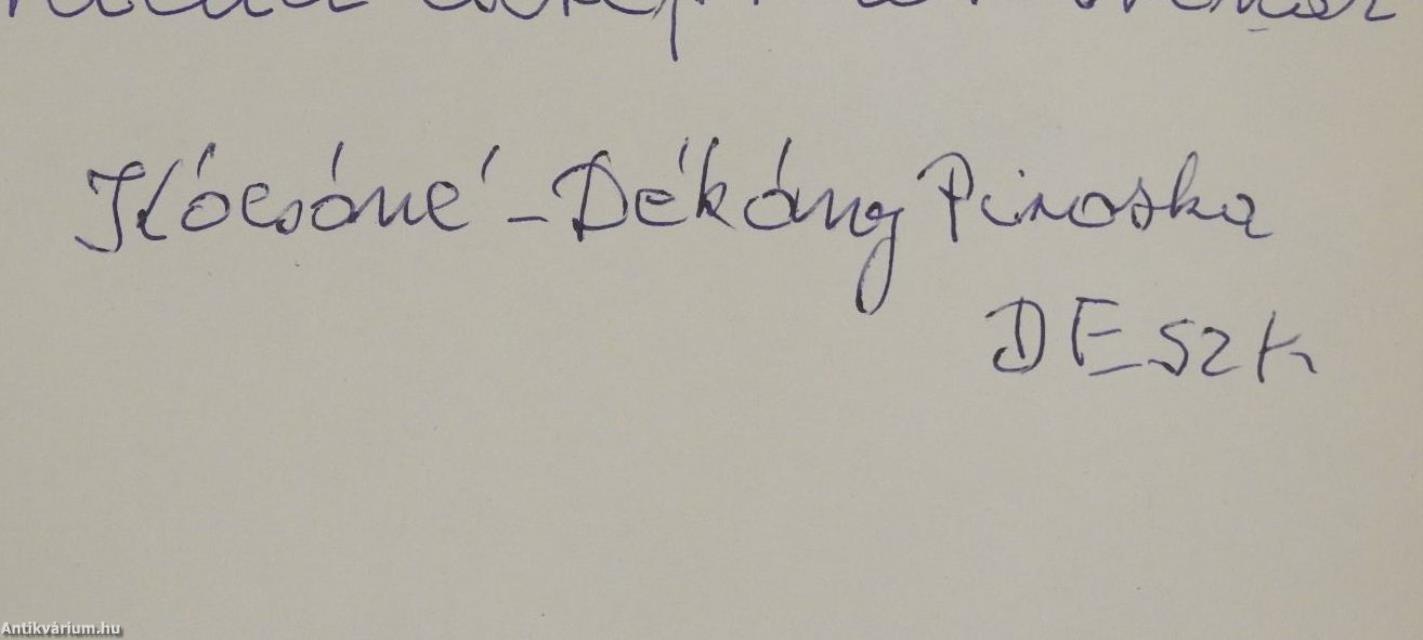 Kócsóné - Dékány Piroska
DESZK
Antikvárium.hu